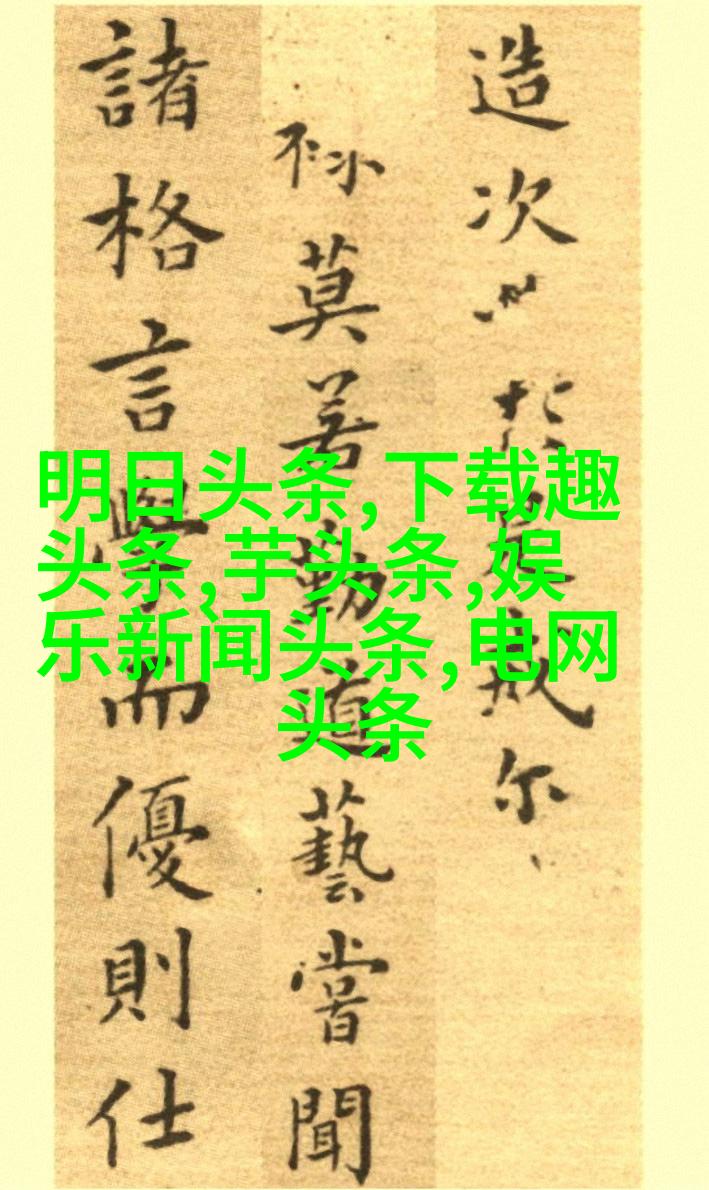 造次尔
莫若勤道藝嘗聞
諸格言學而優則仕
明日头条,下载趣
头条,芋头条,娱
乐新闻头条,电网
头条